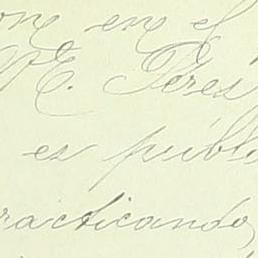 one en el
M. E. Peres
es public
racticando,